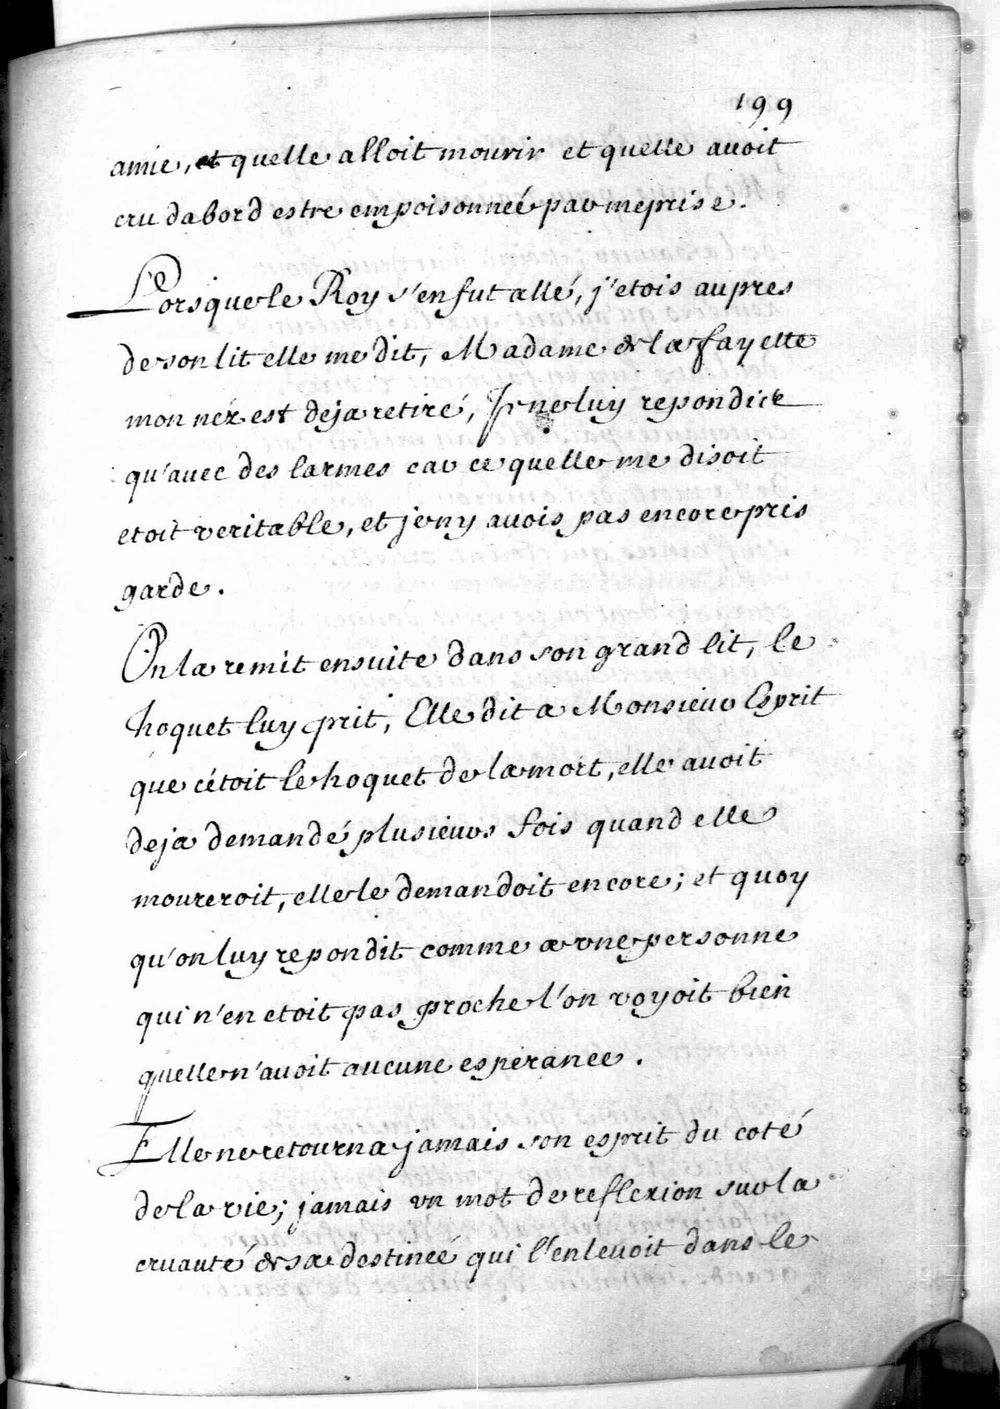 199
amie, et quelle alloit mourir et quelle avoit
cru dabord estre empoisonneé par meprise.
Lorsque le Roy s'en fut allé, j'etois aupres
de son lit elle me dit, Madame de la fayette
mon néz est deja retiré, Je ne luy repondis
qu'avec des larmes car ce quelle me disoit
etoit veritable, et je ny avois pas encore pris
garde.
On la remit ensuite dans son grand lit, le
hoquet luy prit, Elle dit a Monsieur Esprit
que cétoit le hoquet de la mort, elle avoit
deja demandé plusieurs fois quand elle
moureroit, elle le demandoit encore; et quoy
qu'on luy repondit comme a vne personne
qui n'en etoit pas proche l'on voyoit bien
quelle n'avoit aucune esperance.
Elle ne retourna jamais son esprit du coté
de la vie; jamais vn mot de reflexion sur la
cruauté de sa destineé qui l'enlevoit dans le